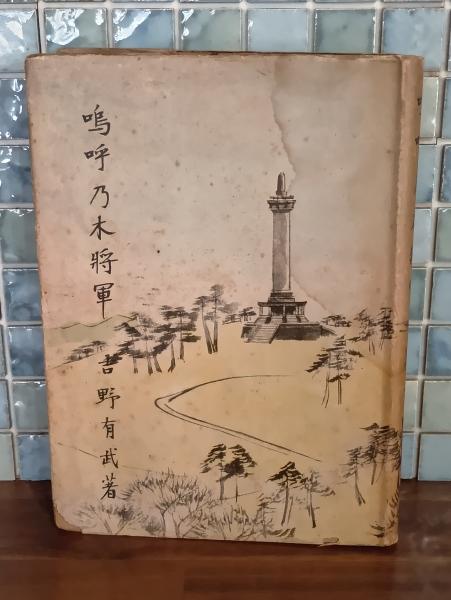 嗚呼乃木將軍
吉野有武著